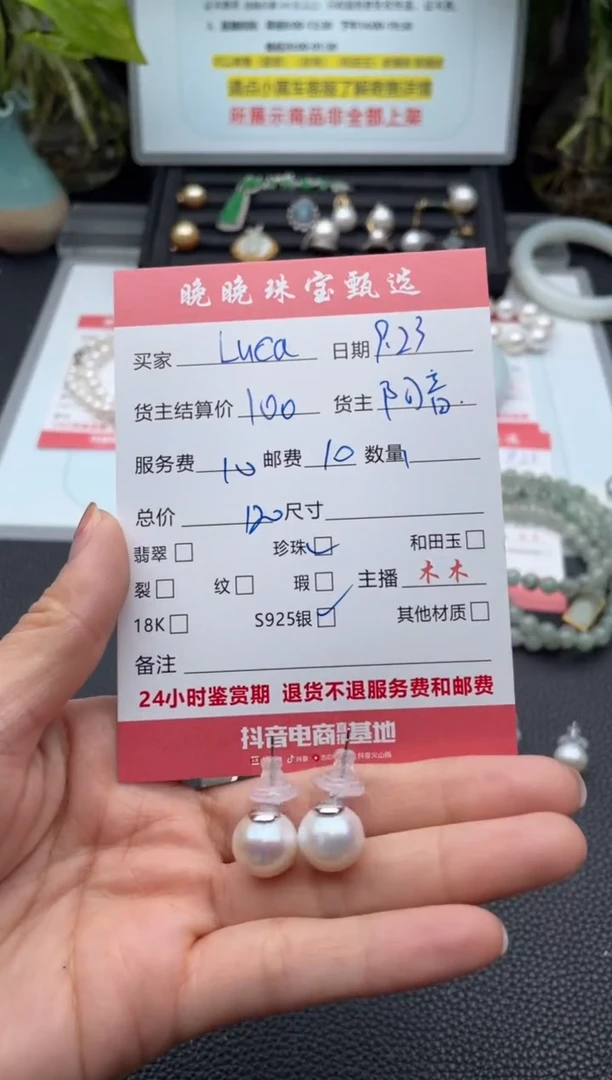 请点小黄车客服了解寄售详情
所展示商品非全部上架
晚晚珠宝甄选
买家 Luca 日期 9.23
货主结算价 100 货主
服务费 10 邮费 10 数量 1
总价 120 尺寸
翡翠 珍珠 和田玉
裂 纹 瑕 主播 木木
18K S925银 其他材质
备注
24小时鉴赏期 退货不退服务费和邮费
抖音电商 基地
抖音 抖音火山版